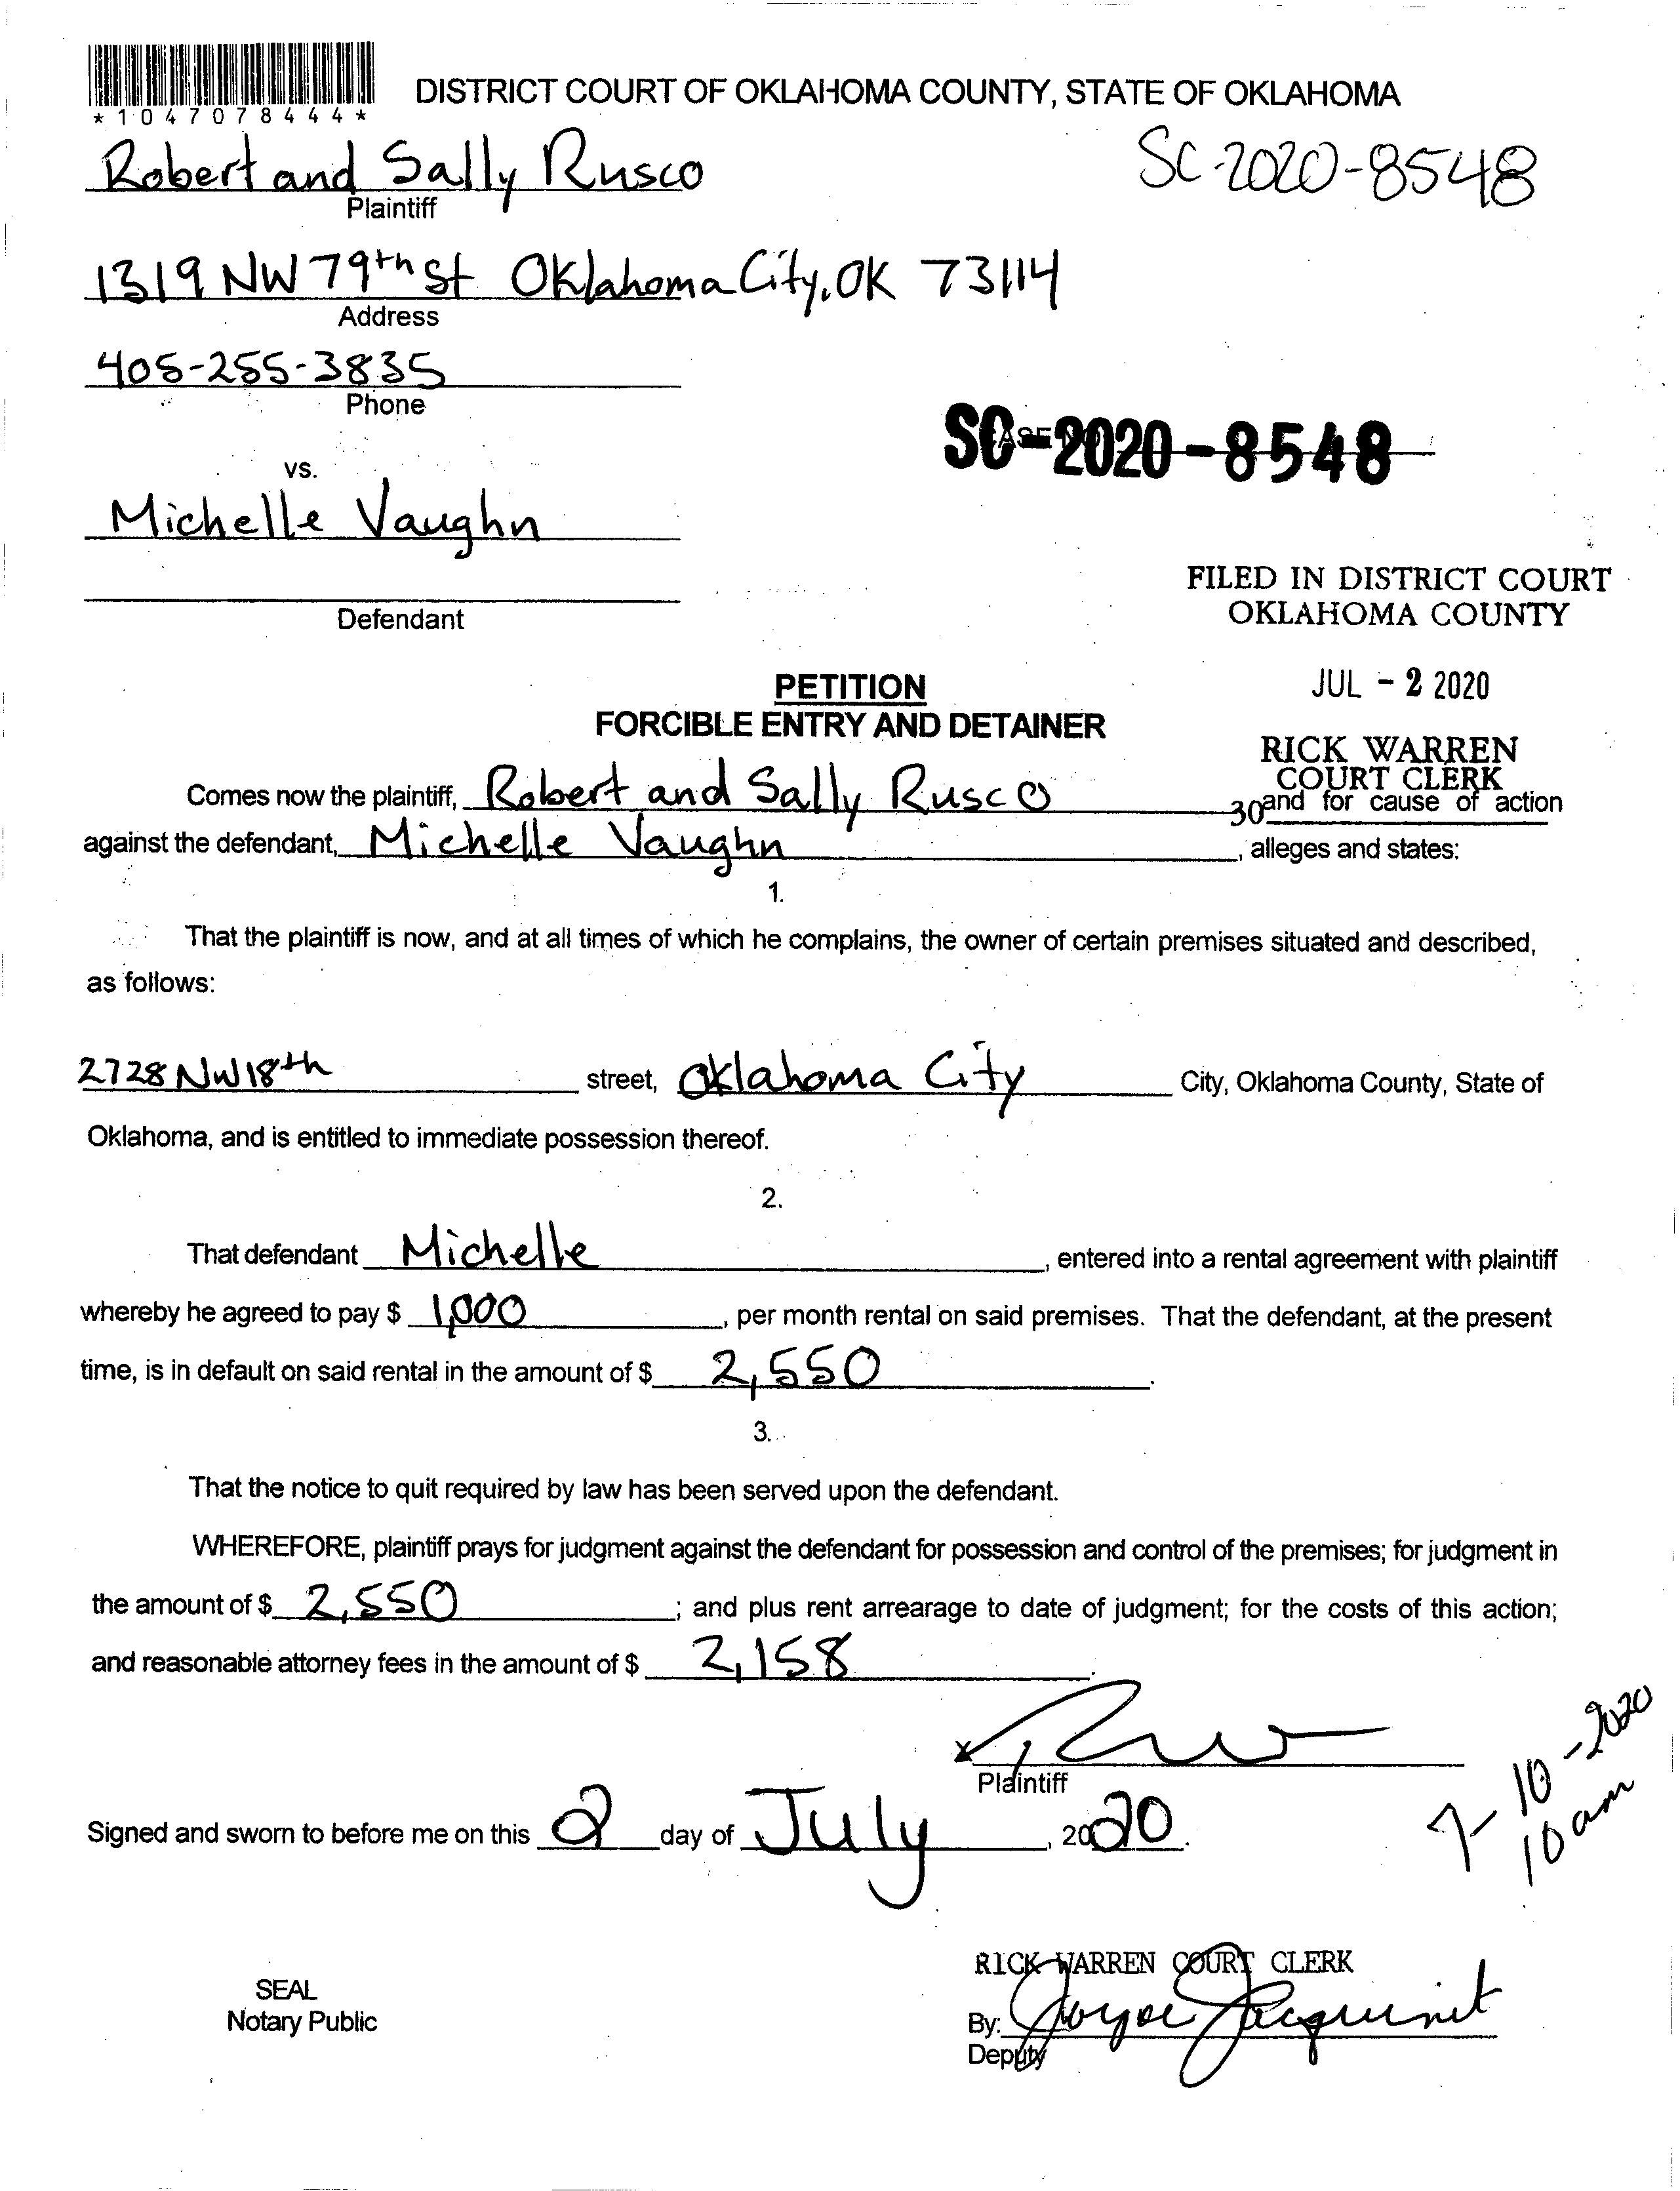 *1047078444*
DISTRICT COURT OF OKLAHOMA COUNTY, STATE OF OKLAHOMA
Robert and Sally Rusco
SC-2020-8548
Plaintiff
1319 NW 79th St Oklahoma City, OK 73114
Address
405-255-3835
Phone
SC-2020-8548
vs.
Michelle Vaughn
Defendant
FILED IN DISTRICT COURT
OKLAHOMA COUNTY
JUL - 2 2020
PETITION
FORCIBLE ENTRY AND DETAINER
RICK WARREN
COURT CLERK
Comes now the plaintiff, Robert and Sally Rusco and for cause of action
30
against the defendant, Michelle Vaughn, alleges and states:
1.
That the plaintiff is now, and at all times of which he complains, the owner of certain premises situated and described,
as follows:
2728 NW 18th street, Oklahoma City City, Oklahoma County, State of
Oklahoma, and is entitled to immediate possession thereof.
2.
That defendant Michelle, entered into a rental agreement with plaintiff
whereby he agreed to pay $ 1,000, per month rental on said premises. That the defendant, at the present
time, is in default on said rental in the amount of $ 2,550.
3.
That the notice to quit required by law has been served upon the defendant.
WHEREFORE, plaintiff prays for judgment against the defendant for possession and control of the premises; for judgment in
the amount of $ 2,550; and plus rent arrearage to date of judgment; for the costs of this action;
and reasonable attorney fees in the amount of $ 2,158.
x
Plaintiff
7-10-2020
10am
Signed and sworn to before me on this 2 day of July, 2020.
RICK WARREN COURT CLERK
SEAL
Notary Public
By: Joyce Jacquint
Deputy